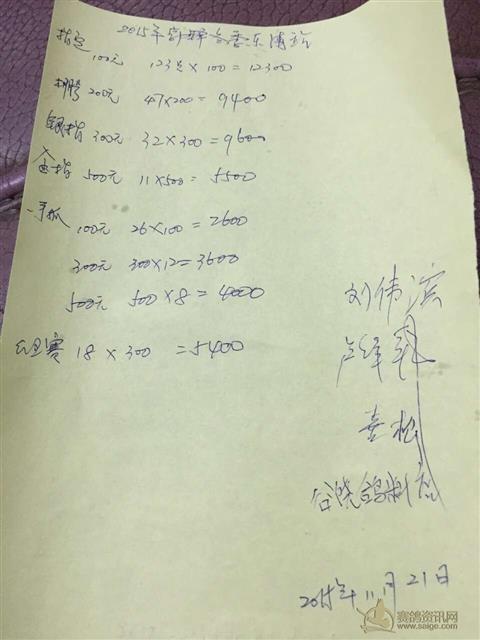 2015年
指定 100元 123羽×100=12300
200元 47×200=9400
银指 300元 32×300=9600
金指 500元 11×500=5500
一手抓 100元 26×100=2600
300元 300×12=3600
500元 500×8=4000
赛 18×300=5400
刘伟滨
喜松
鸽
2015年11月21日
赛鸽资讯网
www.saige.com